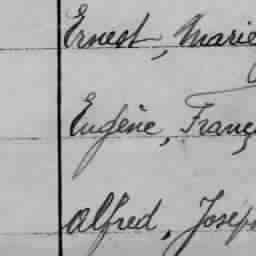 Ernest, Marie
Eugène, Franç
Alfred, Joseph